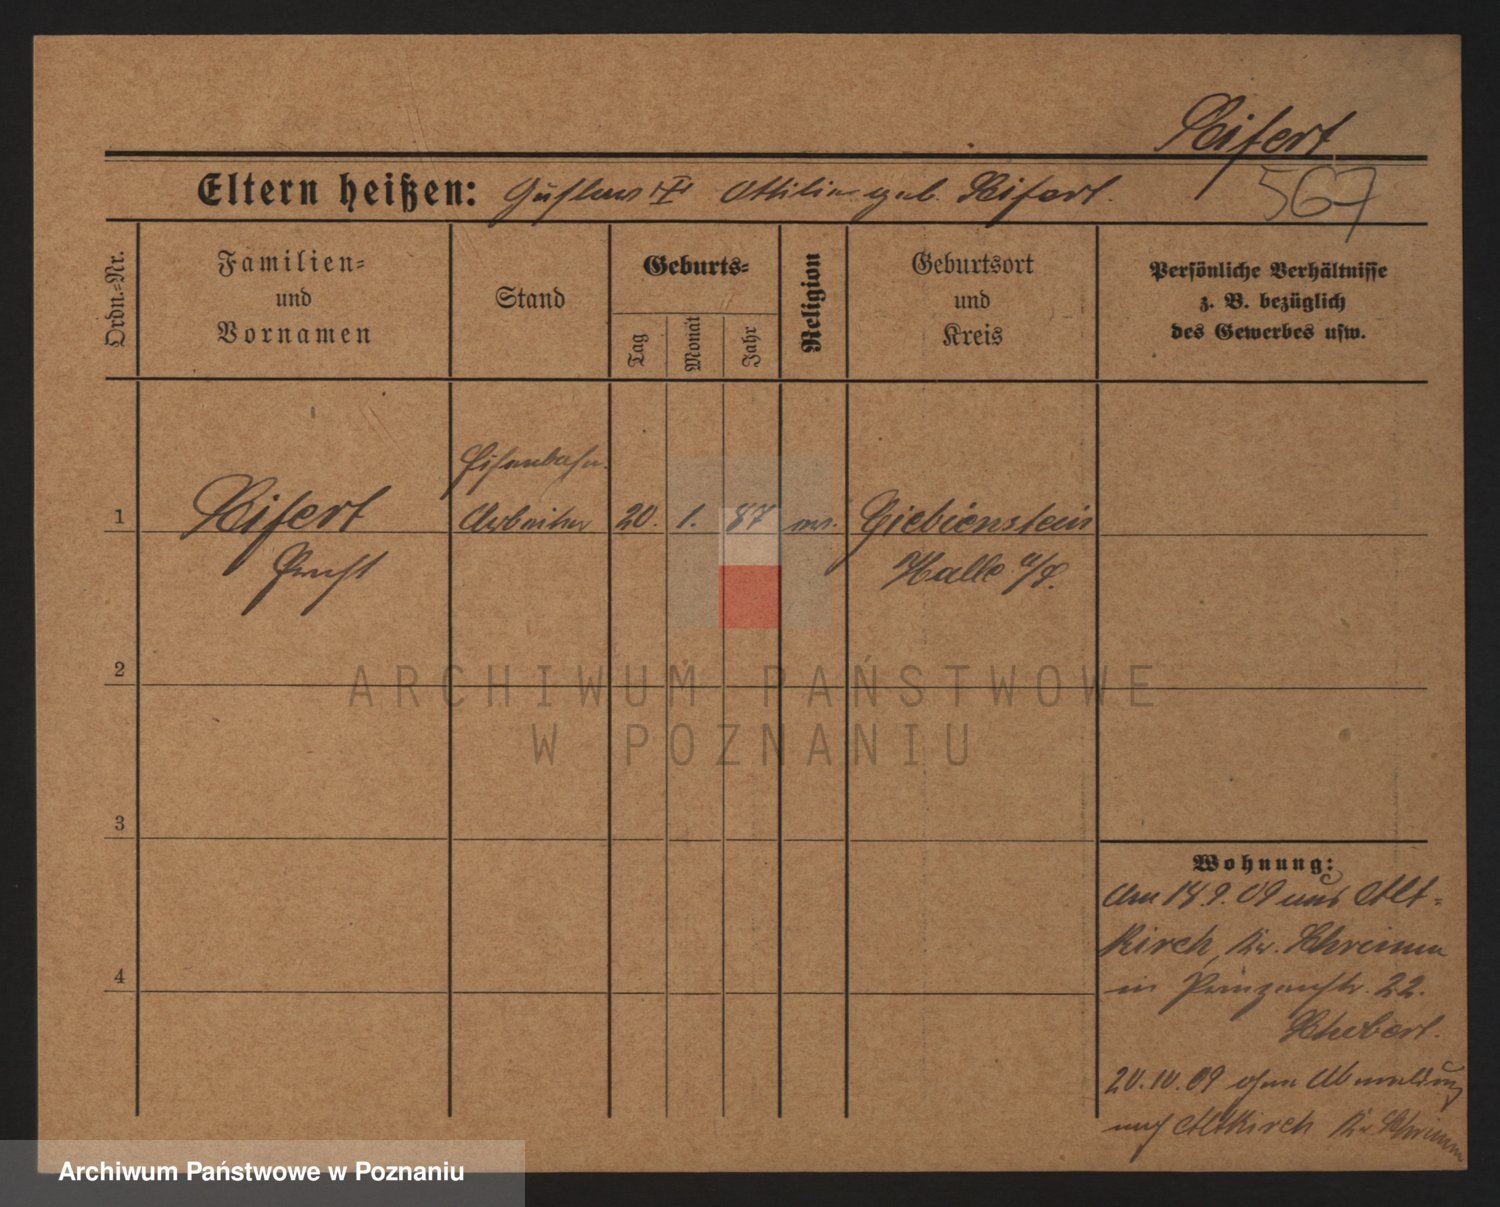 Seifert
567
Eltern heißen: Gustav u Ottilie geb. Seifert.
Ordn.-Nr.
Familien-
und
Vornamen
Stand
Geburts-
Tag
Monat
Jahr
Religion
Geburtsort
und
Kreis
Persönliche Verhältnisse
z. B. bezüglich
des Gewerbes usw.
Eisenbahn.
1 Seifert Arbeiter 20. 1. 87 ev. Giebienstein
Ernst Halle a/S.
2
ARCHIWUM PAŃSTWOWE
W POZNANIU
3
Wohnung:
Am 14.9.09 aus Alt-
kirch, Kr. Schrimm
in Prinzenstr. 22.
Schubert.
4
20.10.09 ohne Abmeldung
nach Altkirch Kr. Schrimm
Archiwum Państwowe w Poznaniu